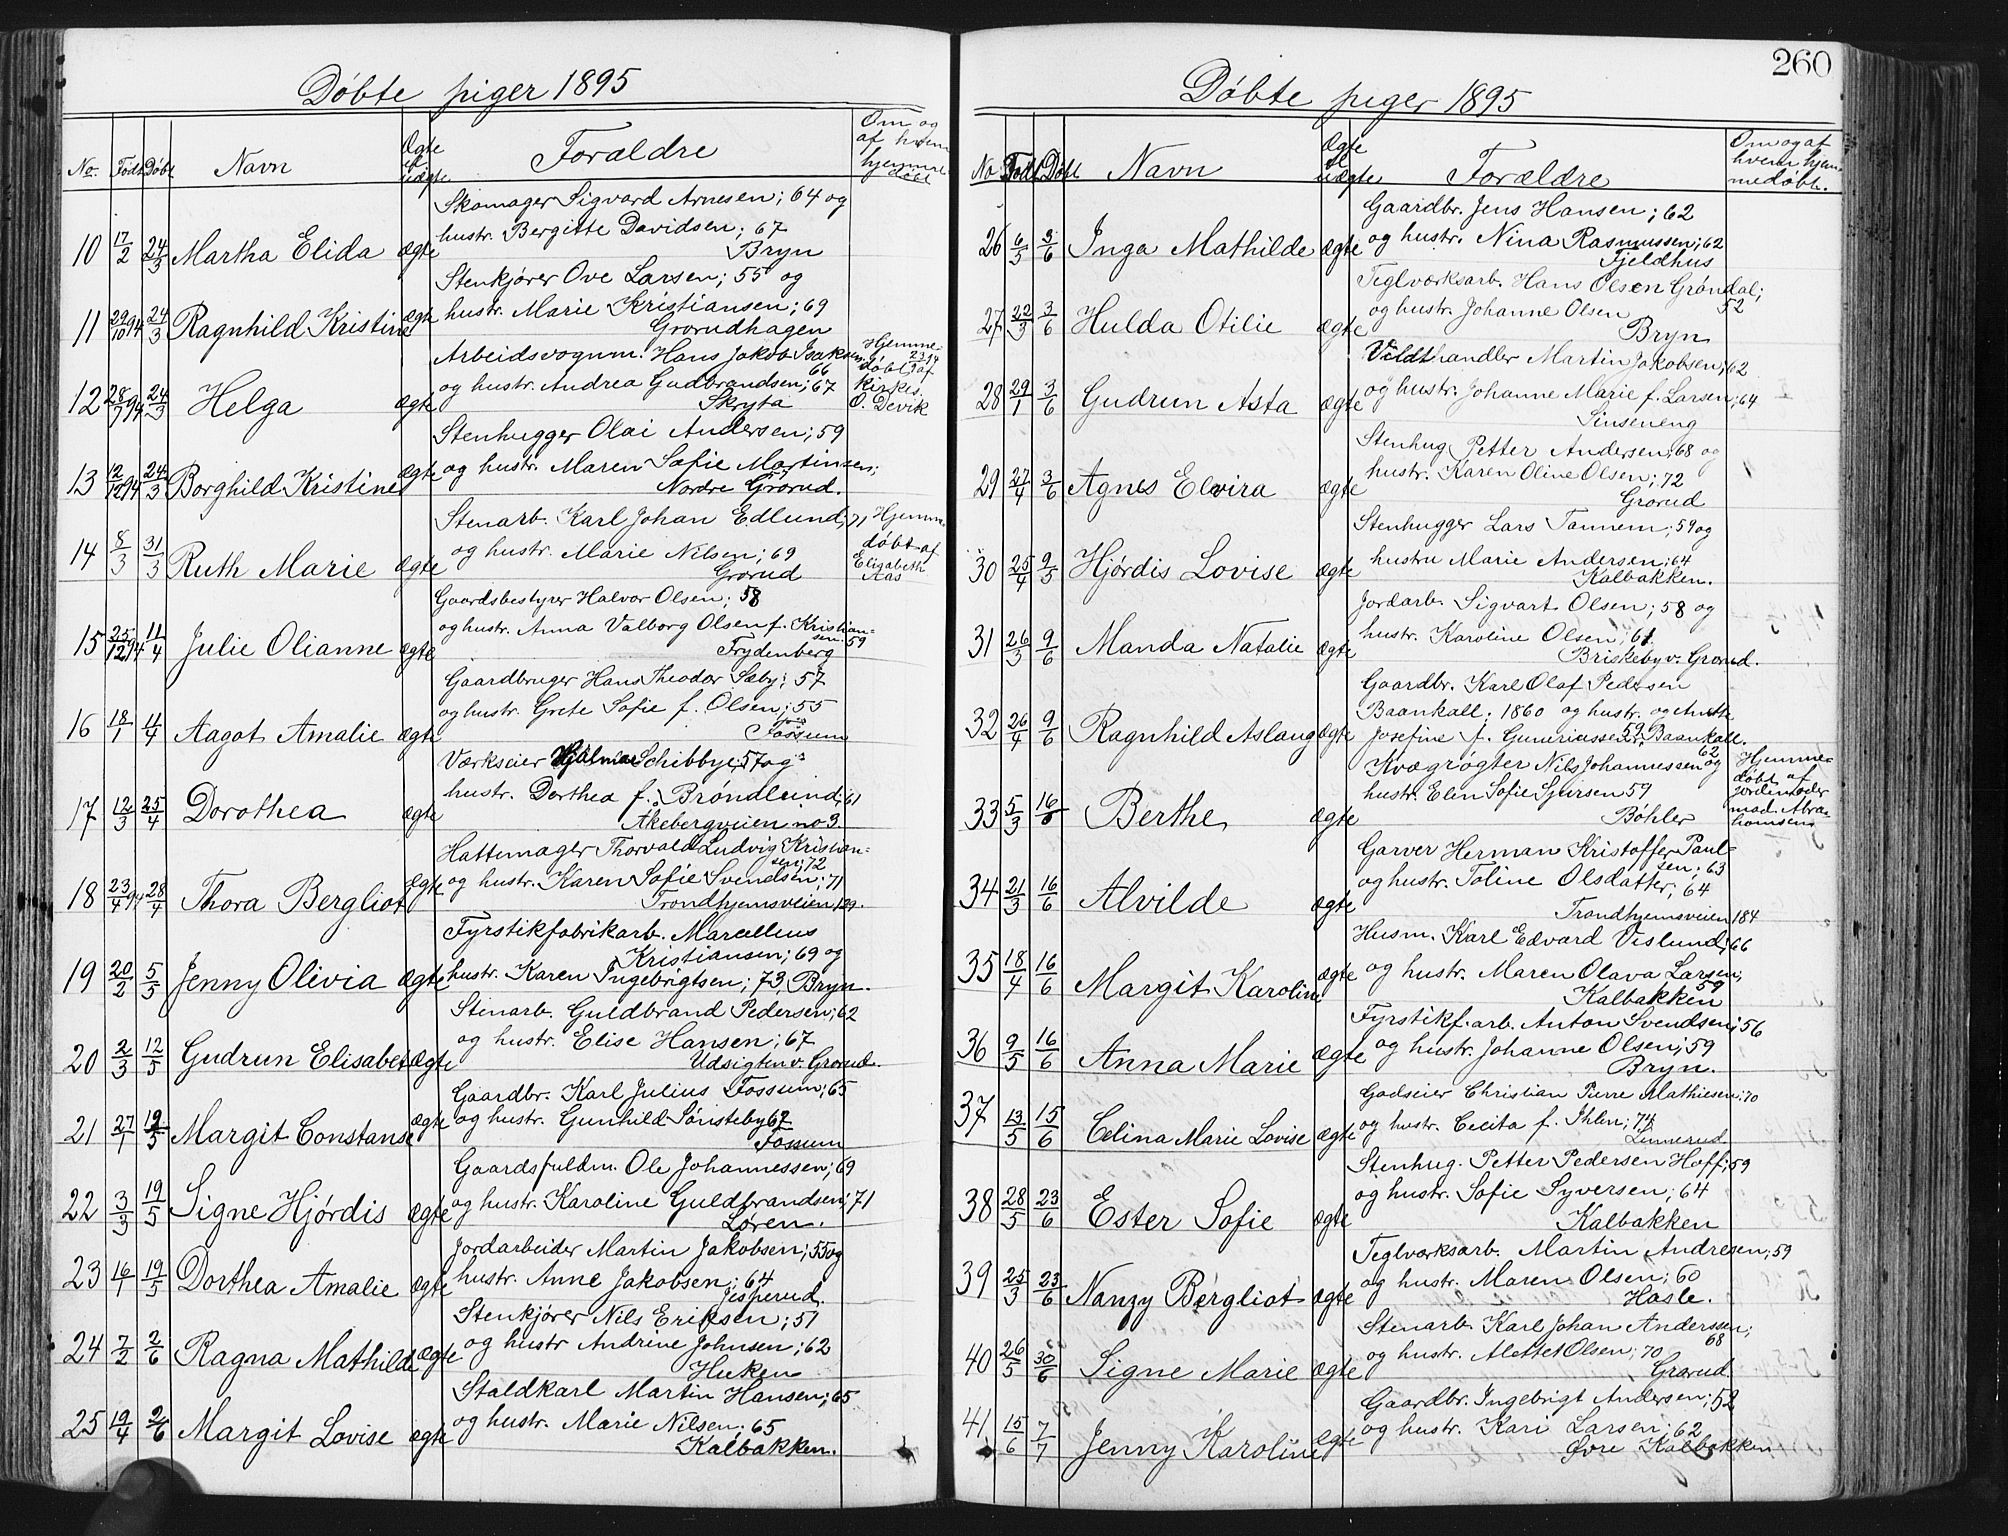 Døbte piger 1895
No. Født Døbt Navn Ægte el. uægte Forældre Om og af hvem hjemmedøbt
Skomager Sigvard Arnesen; 64 og
hustr. Bergitte Davidsen; 67
10 17/2 24/3 Martha Elida ægte Bryn
Stenkjører Ove Larsen; 55 og
hustr. Marie Kristiansen; 69
11 29/10 94 24/3 Ragnhild Kristine ægte Grorudhagen
Arbeidsvognm. Hans Jakob Isaksen 66 Hjemme-
og hustr. Andrea Gudbrandsen; 67 døbt af kirkes.
12 28/7 94 24/3 Helga ægte Skryta O. Devik
Stenhugger Olai Andersen; 59
og hustr. Maren Sofie Martinsen;
13 12/12 94 24/3 Borghild Kristine ægte Nordre Grorud.
Stenarb. Karl Johan Edlund; 71 Hjemme-
og hustr. Marie Nilsen; 69 døbt af
14 8/3 31/3 Ruth Marie ægte Grorud Elisabeth Aas
Gaardsbestyrer Halvor Olsen; 58
og hustr. Anna Valborg Olsen f. Kristian-
sen 59
15 25/12 94 11/4 Julie Olianne ægte Frydenberg
Gaardbruger Hans Theodor Sæby; 57
og hustr. Grete Sofie f. Olsen; 55
16 18/1 4/4 Aagot Amalie ægte Fossum
Værkseier Hjalmar Schibbye; 57 og
hustr. Dorthea f. Brøndlund; 61
17 12/3 25/4 Dorothea ægte Åkebergveien no 3
Hattemager Thorvald Ludvig Kristian-
sen; 72
og hustr. Karen Sofie Svendsen; 71
18 23/4 94 28/4 Thora Bergliot ægte Trondhjemsveien 129.
Fyrstikfabrikarb. Marcellius
Kristiansen; 69 og
19 20/2 5/5 Jenny Olivia ægte hustr. Karen Ingebrigtsen; 73, Bryn.
Stenarb. Guldbrand Pedersen; 62
og hustr. Elise Hansen; 67
20 2/3 12/5 Gudrun Elisabet ægte Udsigten v. Grorud.
Gaardbr. Karl Julius Fossum; 65
og hustr. Gunhild Sønsteby 67
21 27/1 19/5 Margit Constanse ægte Fossum
Gaardsfuldm. Ole Johannessen; 69
og hustr. Karoline Guldbrandsen; 71
22 3/3 19/5 Signe Hjørdis ægte Løren.
Jordarbeider Martin Jakobsen; 55 og
hustr. Anne Jakobsen; 64
23 16/1 19/5 Dorthea Amalie ægte Jisperud.
Stenkjører Nils Eriksen; 57
og hustr Andrine Johnsen; 62
24 7/2 2/6 Ragna Mathilde ægte Huken
Staldkarl Martin Hansen; 65
og hustr. Marie Nilsen; 65
25 19/4 2/6 Margit Lovise ægte Kalbakken.
260
Døbte piger 1895
No Født Døbt Navn Ægte el. uægte Forældre Om og af hvem hjemmedøbt.
Gaardbr. Jens Hansen; 62
og hustr. Nina Rasmussen; 62
26 6/5 3/6 Inga Mathilde ægte Fjeldhus
Teglværksarb. Hans Olsen Grøndal;
52
og hustr. Johanne Olsen
27 22/3 3/6 Hulda Otilie ægte Bryn
Vildthandler Martin Jakobsen; 62
og hustr. Johanne Marie f. Larsen; 64
28 29/1 3/6 Gudrun Asta ægte Sinseneng
Stenhug. Petter Andersen; 68 og
hustr. Karen Oline Olsen; 72
29 27/4 3/6 Agnes Elvira ægte Grorud
Stenhugger Lars Tannem; 59 og
hustru Marie Andersen; 64
30 25/4 9/5 Hjørdis Lovise ægte Kalbakken.
Jordarb. Sigvart Olsen; 58 og
hustr. Karoline Olsen; 61.
31 26/3 9/6 Manda Natalie ægte Briskeby v. Grorud.
Gaardbr. Karl Olaf Pedersen
Baankall; 1860 og hustr. og Anette
32 26/4 9/6 Ragnhild Aslaug ægte Josefine f. Guneriussen; 59 Baankall.
Kvægrøgter Nils Johannessen 62 og Hjemme-
hustr. Elen Sofie Sjursen 59 døbt af jordemoder
33 5/3 16/6 Berthe ægte Bøhler mad. Abra-
hamsen
Garver Herman Kristoffer Paul-
sen; 63
og hustr. Toline Olsdatter; 64
34 21/3 16/6 Alvilde ægte Trondhjemsveien 184
Husm. Karl Edvard Vislund; 66
og hustr. Maren Olava Larsen, 59
35 18/4 16/6 Margit Karoline ægte Kalbakken
Fyrstikf. arb. Anton Svendsen; 56
og hustr. Johanne Olsen; 59
36 9/5 16/6 Anna Marie ægte Bryn.
Godseier Christian Pierre Mathiesen; 70
og hustr. Cecita f. Ihlen; 74
37 13/5 15/6 Celina Marie Lovise ægte Linnerud
Stenhug. Petter Pedersen Hoff; 59
og hustr. Sofie Syversen; 64
38 28/5 23/6 Ester Sofie ægte Kalbakken
Teglværksarb. Martin Andresen; 59
og hustr. Maren Olsen; 60
39 25/3 23/6 Nanzy Bergliot ægte Hasle.
Stenarb. Karl Johan Anderssen;
68
og hustr. Alettet Olsen; 70
40 26/5 30/6 Signe Marie ægte Grorud
Gaardbr. Ingebrigt Andersen; 52
og hustr. Kari Larsen; 62
41 15/6 7/7 Jenny Karoline ægte Øvre Kalbakken